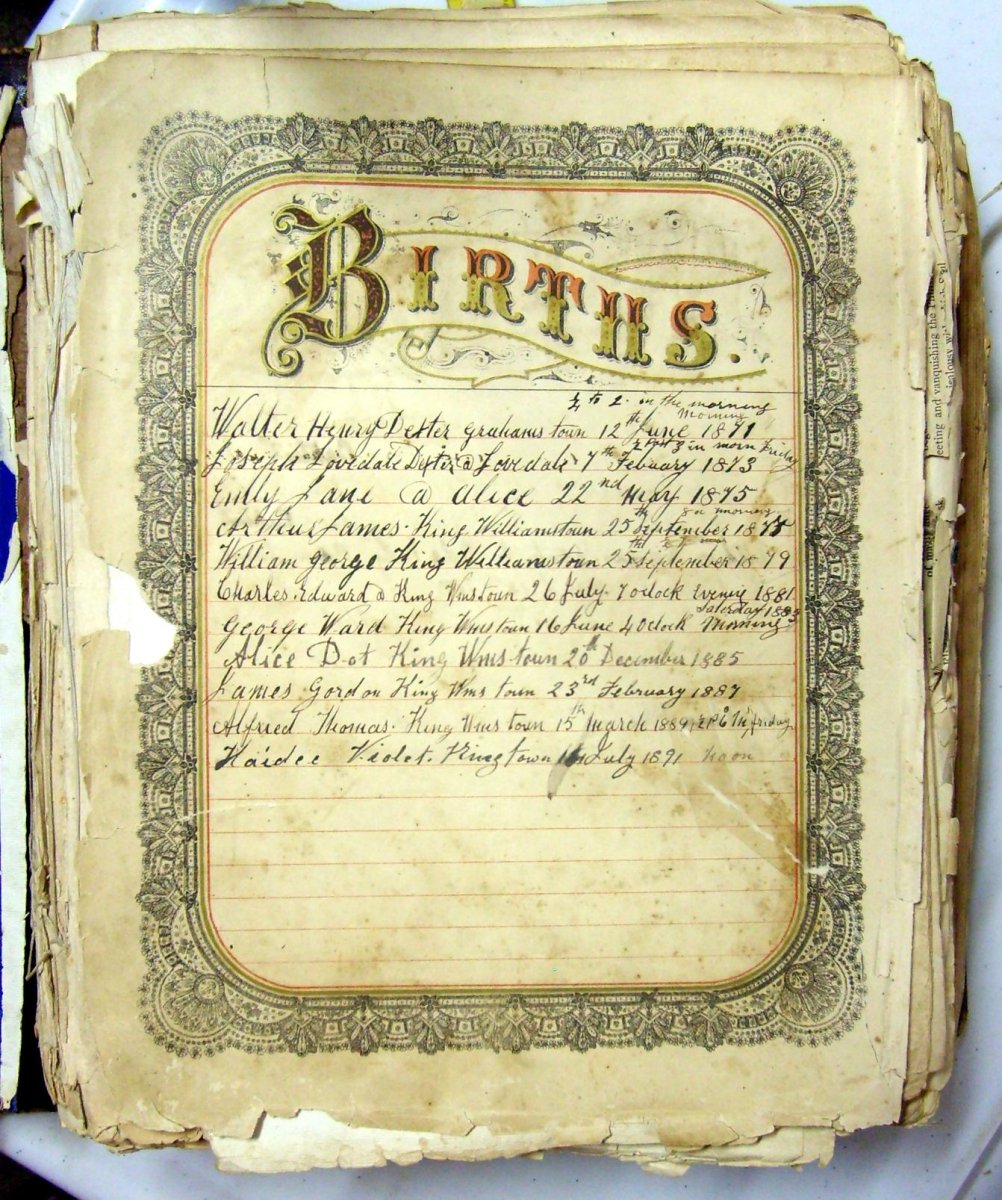 BIRTHS.
½ to 2. in the morning
Morning
Walter Henry Dexter grahams town 12th June 1871
½ past 3 in morn Friday
Joseph Lovedale Dexter @ Lovedale 7th Febuary 1873
Emily Jane @ Alice 22nd May 1875
morning
Arthur James. King Williamstoun 25th September 18
William george King Williamstoun 25th September 18 79
Charles. Edward @ King Wmstoun 26 July. 7 oclock Evening 1881
Saterday 188
George Ward King Wms toun 16 June 4 Oclock Morning
Alice Dot King Wms town 20th December 1885
James Gordon King Wms toun 23rd February 1887
Alfred Thomas. King Wms toun 15th March 1889 friday
Haidee Violet. King town July 1891 Noon
ecting and vanquishing the
jealousy